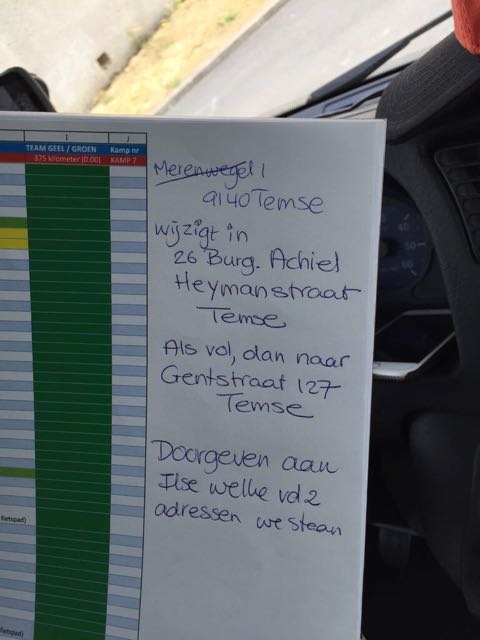 I J
TEAM GEEL / GROEN Kamp nr
375 kilometer (0.00) KAMP 7
Merenwegel 1
9140 Temse
wijzigt in
26 Burg. Achiel
Heymanstraat
Temse
Als vol, dan naar
Gentstraat 127
Temse
Doorgeven aan
Ilse welke vd 2
adressen we staan
fietspad)